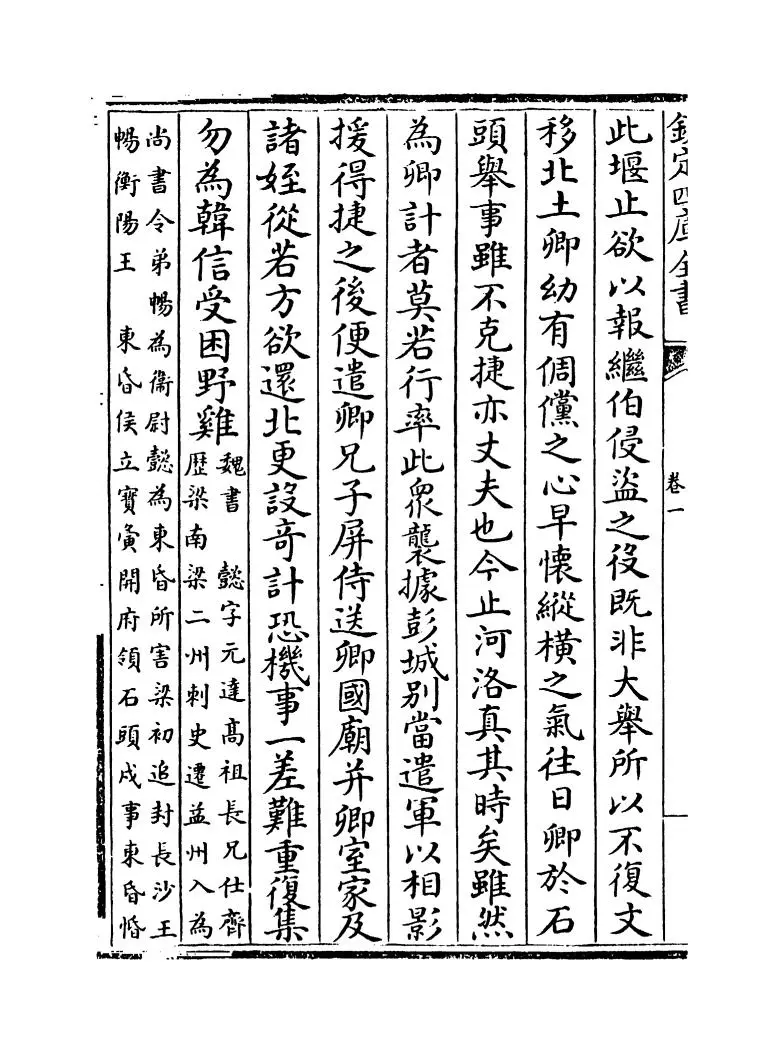 欽定四庫全書
卷一
此堰止欲以報繼伯侵盜之役既非大舉所以不復文
移北土卿幼有倜儻之心早懷縱橫之氣往日卿於石
頭舉事雖不克捷亦丈夫也今止河洛真其時矣雖然
為卿計者莫若行率此衆襲據彭城别當遣軍以相影
援得捷之後便遣卿兄子屏侍送卿國廟并卿室家及
諸姪從若方欲還北更設竒計恐機事一差難重復集
勿為韓信受困野雞魏書　懿字元達髙祖長兄仕齊
歴梁南梁二州刺史遷益州入為
尚書令弟暢為衞尉懿為東昏所害梁初追封長沙王
暢衡陽王　東昏侯立寶夤開府領石頭戍事東昏惛